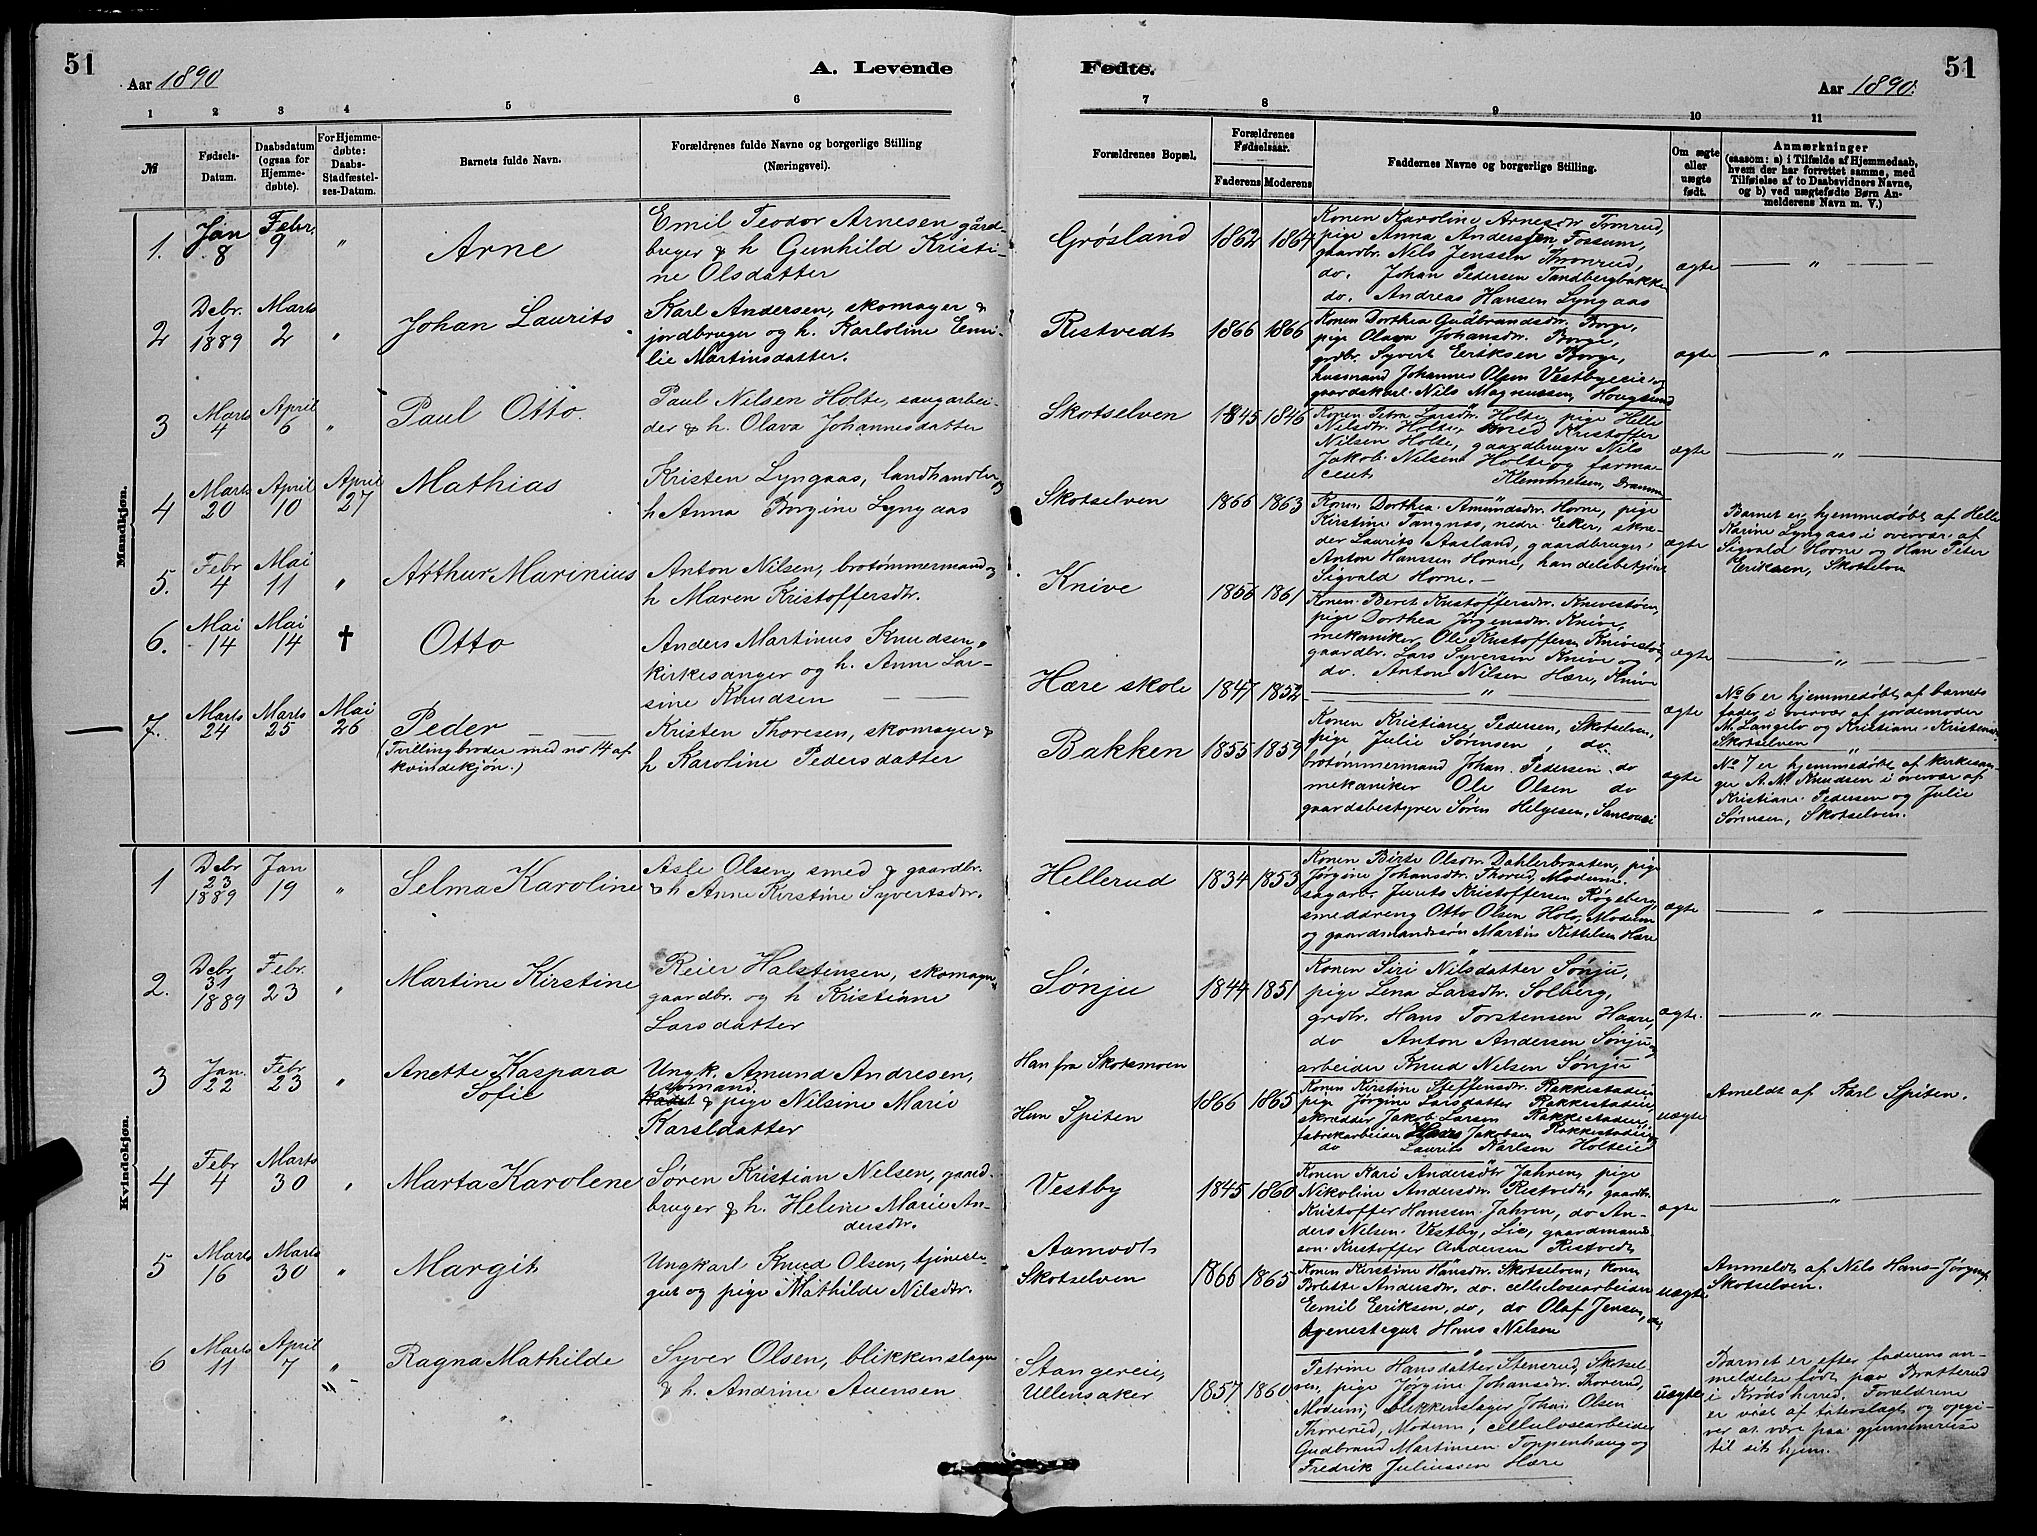 51
Aar 1890
A. Levende
Fødte.
Aar 1890.
51
1 2 3 4 5 6
7 8 9 10 11
№
Fødsels-
Datum.
Daabsdatum
(ogsaa for
Hjemme-
døbte).
For Hjemme-
døbte:
Daabs-
Stadfæstel-
ses-Datum.
Barnets fulde Navn.
Forældrenes fulde Navne og borgerlige Stilling
(Næringsvei).
Forældrenes Bopæl.
Forældrenes
Fødselsaar.
Faderens Moderens
Faddernes Navne og borgerlige Stilling.
Om ægte
eller
uægte
født.
Anmærkninger
(saasom: a) i Tilfælde af Hjemmedaab,
hvem der har forrettet samme, med
Tilføielse af to Daabsvidners Navne,
og b) ved uægtefødte Børn An-
melderens Navn m. V.)
Mandkjøn.
1.
Jan 8
Febr. 9
"
Arne
Emil Teodor Arnesen gård-
bruger & h Gunhild Kristi-
ne Olsdatter
Grøsland
1862 1864
Konen Karoline Arnesdtr
pige Anna Andersen Fossum,
gaardbr. Nils Jenssen Thronrud,
do. Johan Pedersen Tandbergbakke
do. Andreas Hansen Lyngaas
ægte
"
2
Debr. 1 1889
Marts 2
"
Johan Laurits
Karl Andersen, skomager &
jordbruger og h. Karoline Emi-
lie Martinsdatter.
Ristvedt
1866 1866
Konen Dorthea Gudbrandsdtr. Borge,
pige Olava Johansdtr. Borge,
grdbr. Syvert Eeriksen Borge,
husmand Johannes Olsen Vestbyeeie og
gaardskarl Nils Magnussen Hougsund
ægte
"
3
Marts 4
April 6
"
Paul Otto.
Paul Nilsen Holte, saugarbei-
der & h. Olava Johannesdatter
Skotselven
1845 1846
Konen Petra Larsdtr. Holte, pige Helle
Nilsdtr. Holte, Kristoffer
Nilsen Holte, gaardbruger Nils
Jakob Nilsen Holte og farma-
ceut Klemmetsen, Dramm
ægte
"
4
Marts 20
April 10
April 27
Mathias
Kristen Lyngaas, landhandler og
h Anna Borgine Lyngaas
Skotselven
1866 1863
Konen Dorthea Amundsdtr. Horne, pige
Kirstine Tangnæs, nedre Eker, skræ-
der Laurits Aasland, gaardbruger
Anton Hanssen Horne, handelsbetjent
Sigvald Horne.
ægte
Barnet er hjemmedøbt af Helle
Karine Lyngaas i overvær af
Sigvald Horne og Han Peter
Eriksen, Skotselven
5.
Febr 4
Mai 11
"
Arthur Marinius
Anton Nilsen, brotømmermand og
h Maren Kristoffersdtr.
Knive
1856 1861
Konen Beret Kristoffersdtr. Knivestøen,
pige Dorthea Jørgensdtr. Knive,
mekaniker Ole Kristoffersen Knivestøen,
gaardbr. Lars Syversen Knive og
do. Anton Nilsen Hære, Knive
ægte
"
6.
Mai 14
Mai 14
†
Otto
Anders Martinus Knudsen,
kirkesanger og h. Anne Lar-
sine Knudsen
Hære skole
1847 1852
"
ægte
No 6 er hjemmedøbt af barnets
fader i overvær af jordemoder
M. Langelo og Kristiane Kristens.
Skotselven
7.
Marts 24
Marts 25
Mai 26
Peder
(Tvillingbroder med no 14 af
kvindekjøn.)
Kristen Thoresen, skomager &
h Karoline Pedersdatter
Bakken
1855 1859
Konen Kristiane Pedersen, Skotselven,
pige Julie Sørensen, do.
brotømmermand Johan Pedersen do
mekaniker Ole Olsen do
gaardsbestyrer Søren Helgesen, Sancousi
ægte
No 7 er hjemmedøbt af kirkesan-
ger A. M. Knudsen i overvær af
Kristiane Pedersen og Julie
Sørensen, Skotselven.
Kvindekjøn.
1
Debr 23 1889
Jan 19
"
Selma Karoline
Asle Olsen, smed & gaardbr.
& h Anne Kirstine Syvertsdtr.
Hellerud
1834 1853
Konen Birte Olsdtr. Dahlerbraaten, pige
Jørgine Johansdtr. Thorud, Modum.
sagarb. Juuls Kristoffersen Røgeberg,
smeddreng Otto Olsen Holo, Modum
og gaardmandssøn Martin Kittelsen Hære
ægte
"
2.
Debr. 31 1889
Febr. 23
"
Martine Kirstine
Reier Halstensen, skomager,
gaardbr. og h Kristiane
Larsdatter
Sønju
1844 1851
Konen Siri Nilsdatter Sønju,
pige Lena Larsdtr. Solberg,
grdbr. Hans Torstensen Haare,
do Anton Andersen Sønju og
arbeider Knud Nilsen Sønju
ægte.
"
3
Jan. 22
Febr 23
"
Anette Kaspara
Sofie
Ungk. Amund Andresen,
sømand
& pige Nilsine Marie
Karsldatter
Han fra Skotsmoen
Hun Spiten
1866 1865
Konen Kirstine Steffensdtr. Rakkestadeie
pige Jørgine Larsdatter Rakkestadeie
skrædder Jakob Larsen Rakkestadeie,
fabrikarbeider Hans Jakobsen Rakkestadeie og
do Laurits Karlsen Holteeie
uægte
Ameldt af Karl Spiten.
4
Febr 4
Marts 30
"
Marta Karolene
Søren Kristian Nilsen, gaard-
bruger & h. Helene Marie An-
dersdtr.
Vestby
1845 1860
Konen Kari Andersdtr Jahren, pige
Nikoline Andersdtr. Ristvedt, gaardbr.
Kristoffer Hanssen Jahren, do An-
ders Nilsen Vestby, Lie, gaardmands-
søn Kristoffer Andersen Ristvedt
ægte
"
5
Marts 16
Marts 30
"
Margit
Ungkarl Knud Olsen, tjeneste-
gut og pige Mathilde Nilsdtr.
Aamodt
Skotselven
1866 1865
Konen Kirstine Hansdtr. Skotselven, konen
Bolette Andersdtr. do. cellulosearbeider
Eemil Eeriksen, do, do Olaf Jensen, do,
tjenestegut Hans Nilsen
uægte
Anmeldt af Nils Hans-Jørgens.
Skotselven.
6
Marts 11
April 7
"
Ragna Mathilde
Syver Olsen, blikkenslager
& h. Andrine Auensen
Stangereie,
Ullensaker
1857 1860
Petrine Hansdatter Stensrud, Skotsel-
ven, pige Jørgine Johansdtr. Thorerud,
Modum, blikkenslager Johan Olsen
Thorerud, Modum, cellulosearbeider
Gudbrand Martinsen Toppenhaug og
Fredrik Juliussen Hære
uægte
Barnet er efter faderens an-
meldelse født paa Bratterud
i Krødsherred. Forældrene
er vist af taterslagt og opgi-
ver at være paa gjennemreise
til sit hjem.